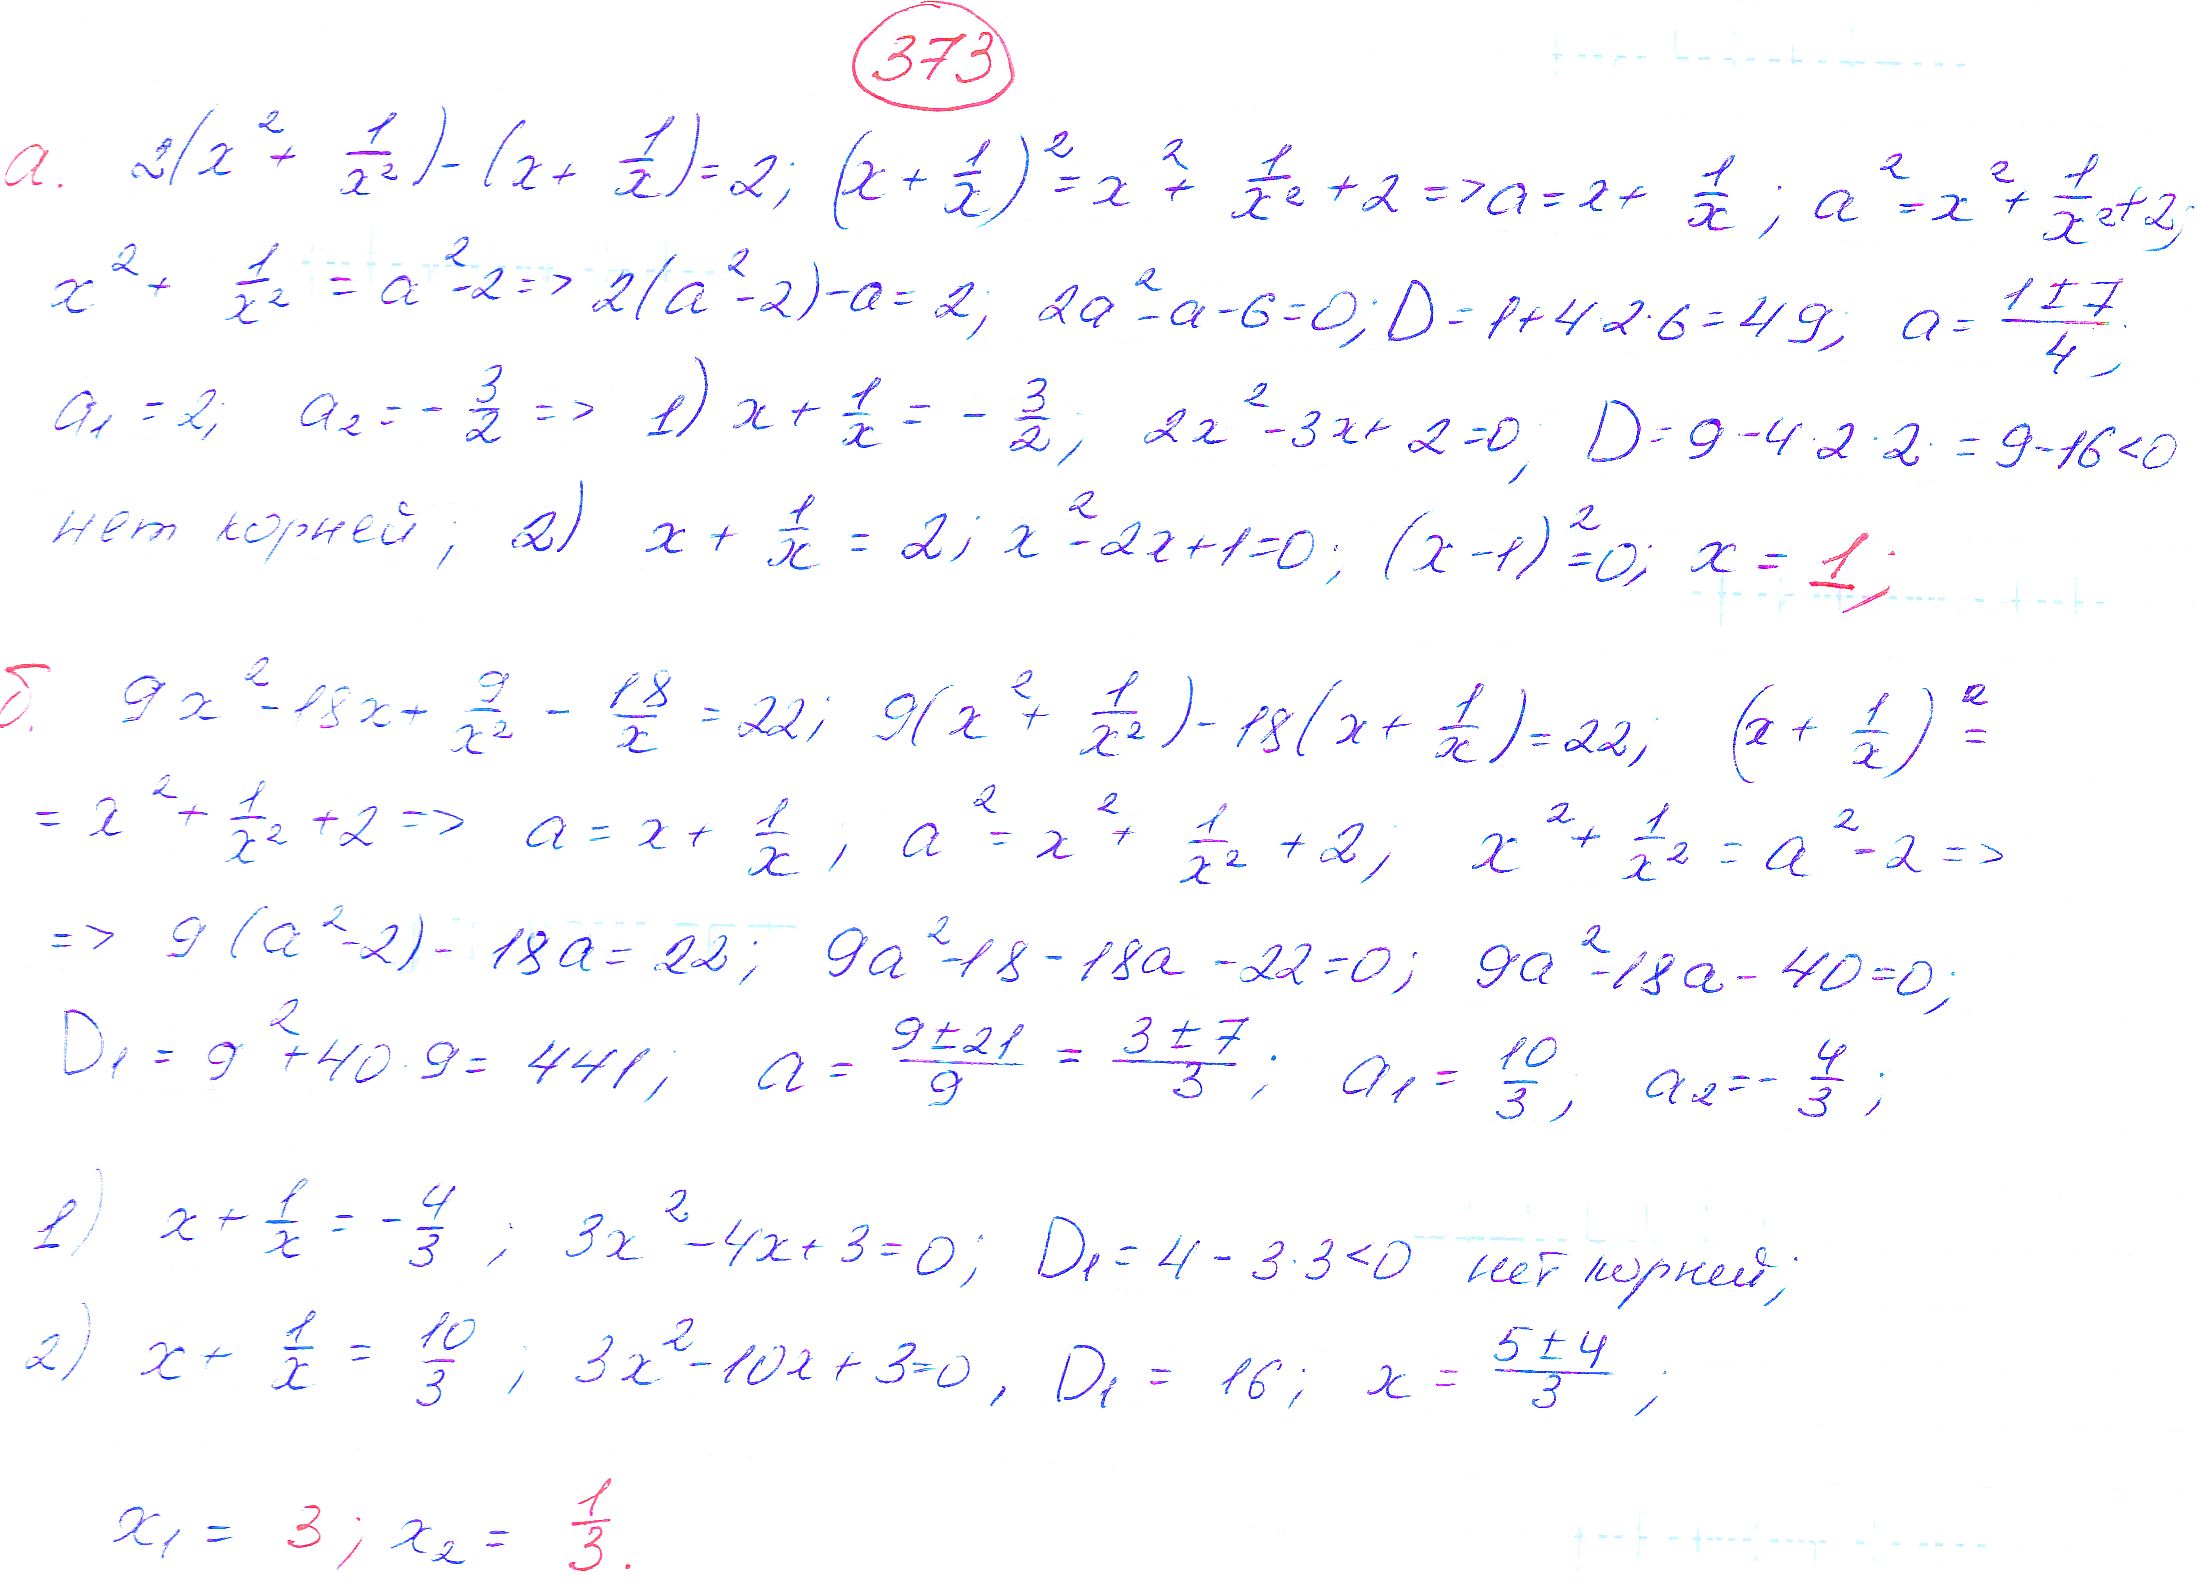 373
а. 2(x² + 1/x²) - (x + 1/x) = 2; (x + 1/x)² = x² + 1/x² + 2 => a = x + 1/x; a² = x² + 1/x² + 2;
x² + 1/x² = a² - 2 => 2(a² - 2) - a = 2; 2a² - a - 6 = 0; D = 1 + 4·2·6 = 49; a = (1 ± 7)/4;
a₁ = 2; a₂ = - 3/2 => 1) x + 1/x = - 3/2; 2x² - 3x + 2 = 0; D = 9 - 4·2·2· = 9 - 16 < 0
нет корней; 2) x + 1/x = 2; x² - 2x + 1 = 0; (x - 1)² = 0; x = 1;
б. 9x² - 18x + 9/x² - 18/x = 22; 9(x² + 1/x²) - 18(x + 1/x) = 22; (x + 1/x)² =
= x² + 1/x² + 2 => a = x + 1/x; a² = x² + 1/x² + 2; x² + 1/x² = a² - 2 =>
=> 9(a² - 2) - 18a = 22; 9a² - 18 - 18a - 22 = 0; 9a² - 18a - 40 = 0;
D₁ = 9² + 40·9 = 441; a = (9 ± 21)/9 = (3 ± 7)/3; a₁ = 10/3; a₂ = - 4/3;
1) x + 1/x = - 4/3; 3x² - 4x + 3 = 0; D₁ = 4 - 3·3 < 0 нет корней;
2) x + 1/x = 10/3; 3x² - 10x + 3 = 0, D₁ = 16; x = (5 ± 4)/3;
x₁ = 3; x₂ = 1/3.